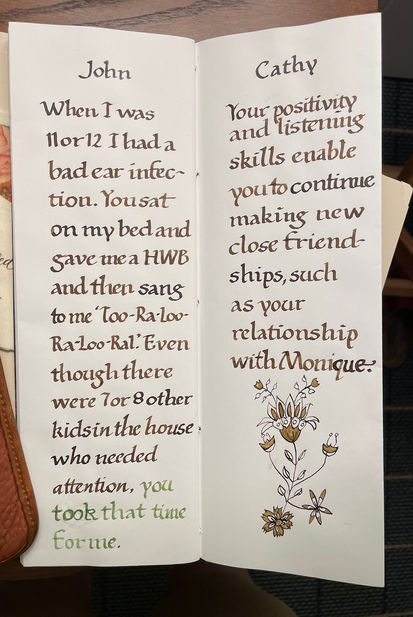 John
When I was
11 or 12 I had a
bad ear infec-
tion. You sat
on my bed and
gave me a HWB
and then sang
to me 'Too-Ra-Loo-
Ra-Loo-Ral.' Even
though there
were 7 or 8 other
kids in the house
who needed
attention, you
took that time
for me.
Cathy
Your positivity
and listening
skills enable
you to continue
making new
close friend-
ships, such
as your
relationship
with Monique.